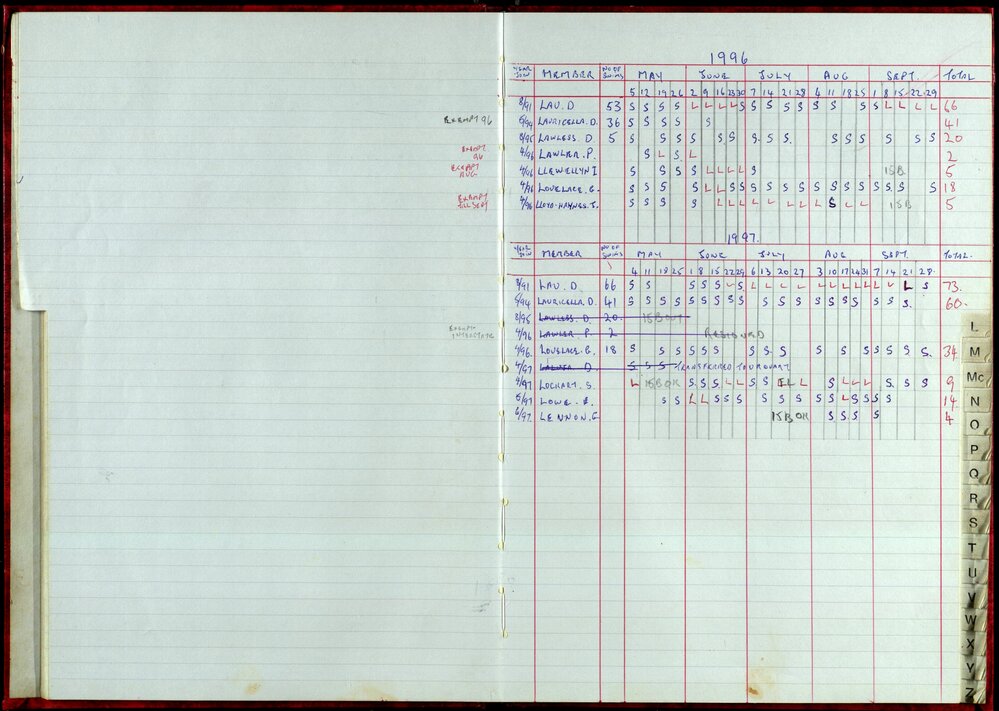 1996
YEAR JOIN MEMBER NO OF SWIMS MAY JUNE JULY AUG SEPT. TOTAL
5 12 19 26 2 9 16 23 30 7 14 21 28 4 11 18 25 1 8 15 22 29
8/91 LAU. D 53 S S S S L L L L S S S S S S S S S L L L L 66
EXEMPT 96 5/94 LAURICELLA. D. 36 S S S S S 41
8/95 LAWLESS. D. 5 S S S S S S S S S S S S S S 20
EXEMPT 96 4/96 LAWLER. P. S L S L 2
EXEMPT AUG 4/96 LLEWELLYN I S S S S L L L L S ISB 5
4/96 LOVELACE. G. S S S S L L S S S S S S S S S S S S S S S 18
EXEMPT TILL SEPT 4/96 LLOYD-HAYNES. J. S S S S L L L L L L L L S L L ISB 5
1997.
YEAR JOIN MEMBER NO OF SWIMS MAY JUNE JULY AUG SEPT. TOTAL.
4 11 18 25 1 8 15 22 29 6 13 20 27 3 10 17 24 31 7 14 21 28
8/91 LAU. D 66 S S S S S L S L L L L L L L L L L L L S 73.
5/94 LAURICELLA. D. 41 S S S S S S S S S S S S S S S S S S S S. 60.
8/95 LAWLESS. D. 20. ISB OUT
EXEMPT INTERSTATE 4/96 LAWLER. P. 2 RESIGNED
4/96. LOVELACE. G. 18 S S S S S S S S S S S S S S S S S. 34
4/97 S S S TRANSFERRED TO
4/97 LOCKART. S. L ISB OK S S S L L S S L L S L L L S S S 9
5/97 LOWE. E. S S L L S S S S S S S S S L S S S S 14
6/97. LENNON. G. ISB OK S S S S 4
L
M
Mc
N
O
P
Q
R
S
T
U
V
W
X
Y
Z